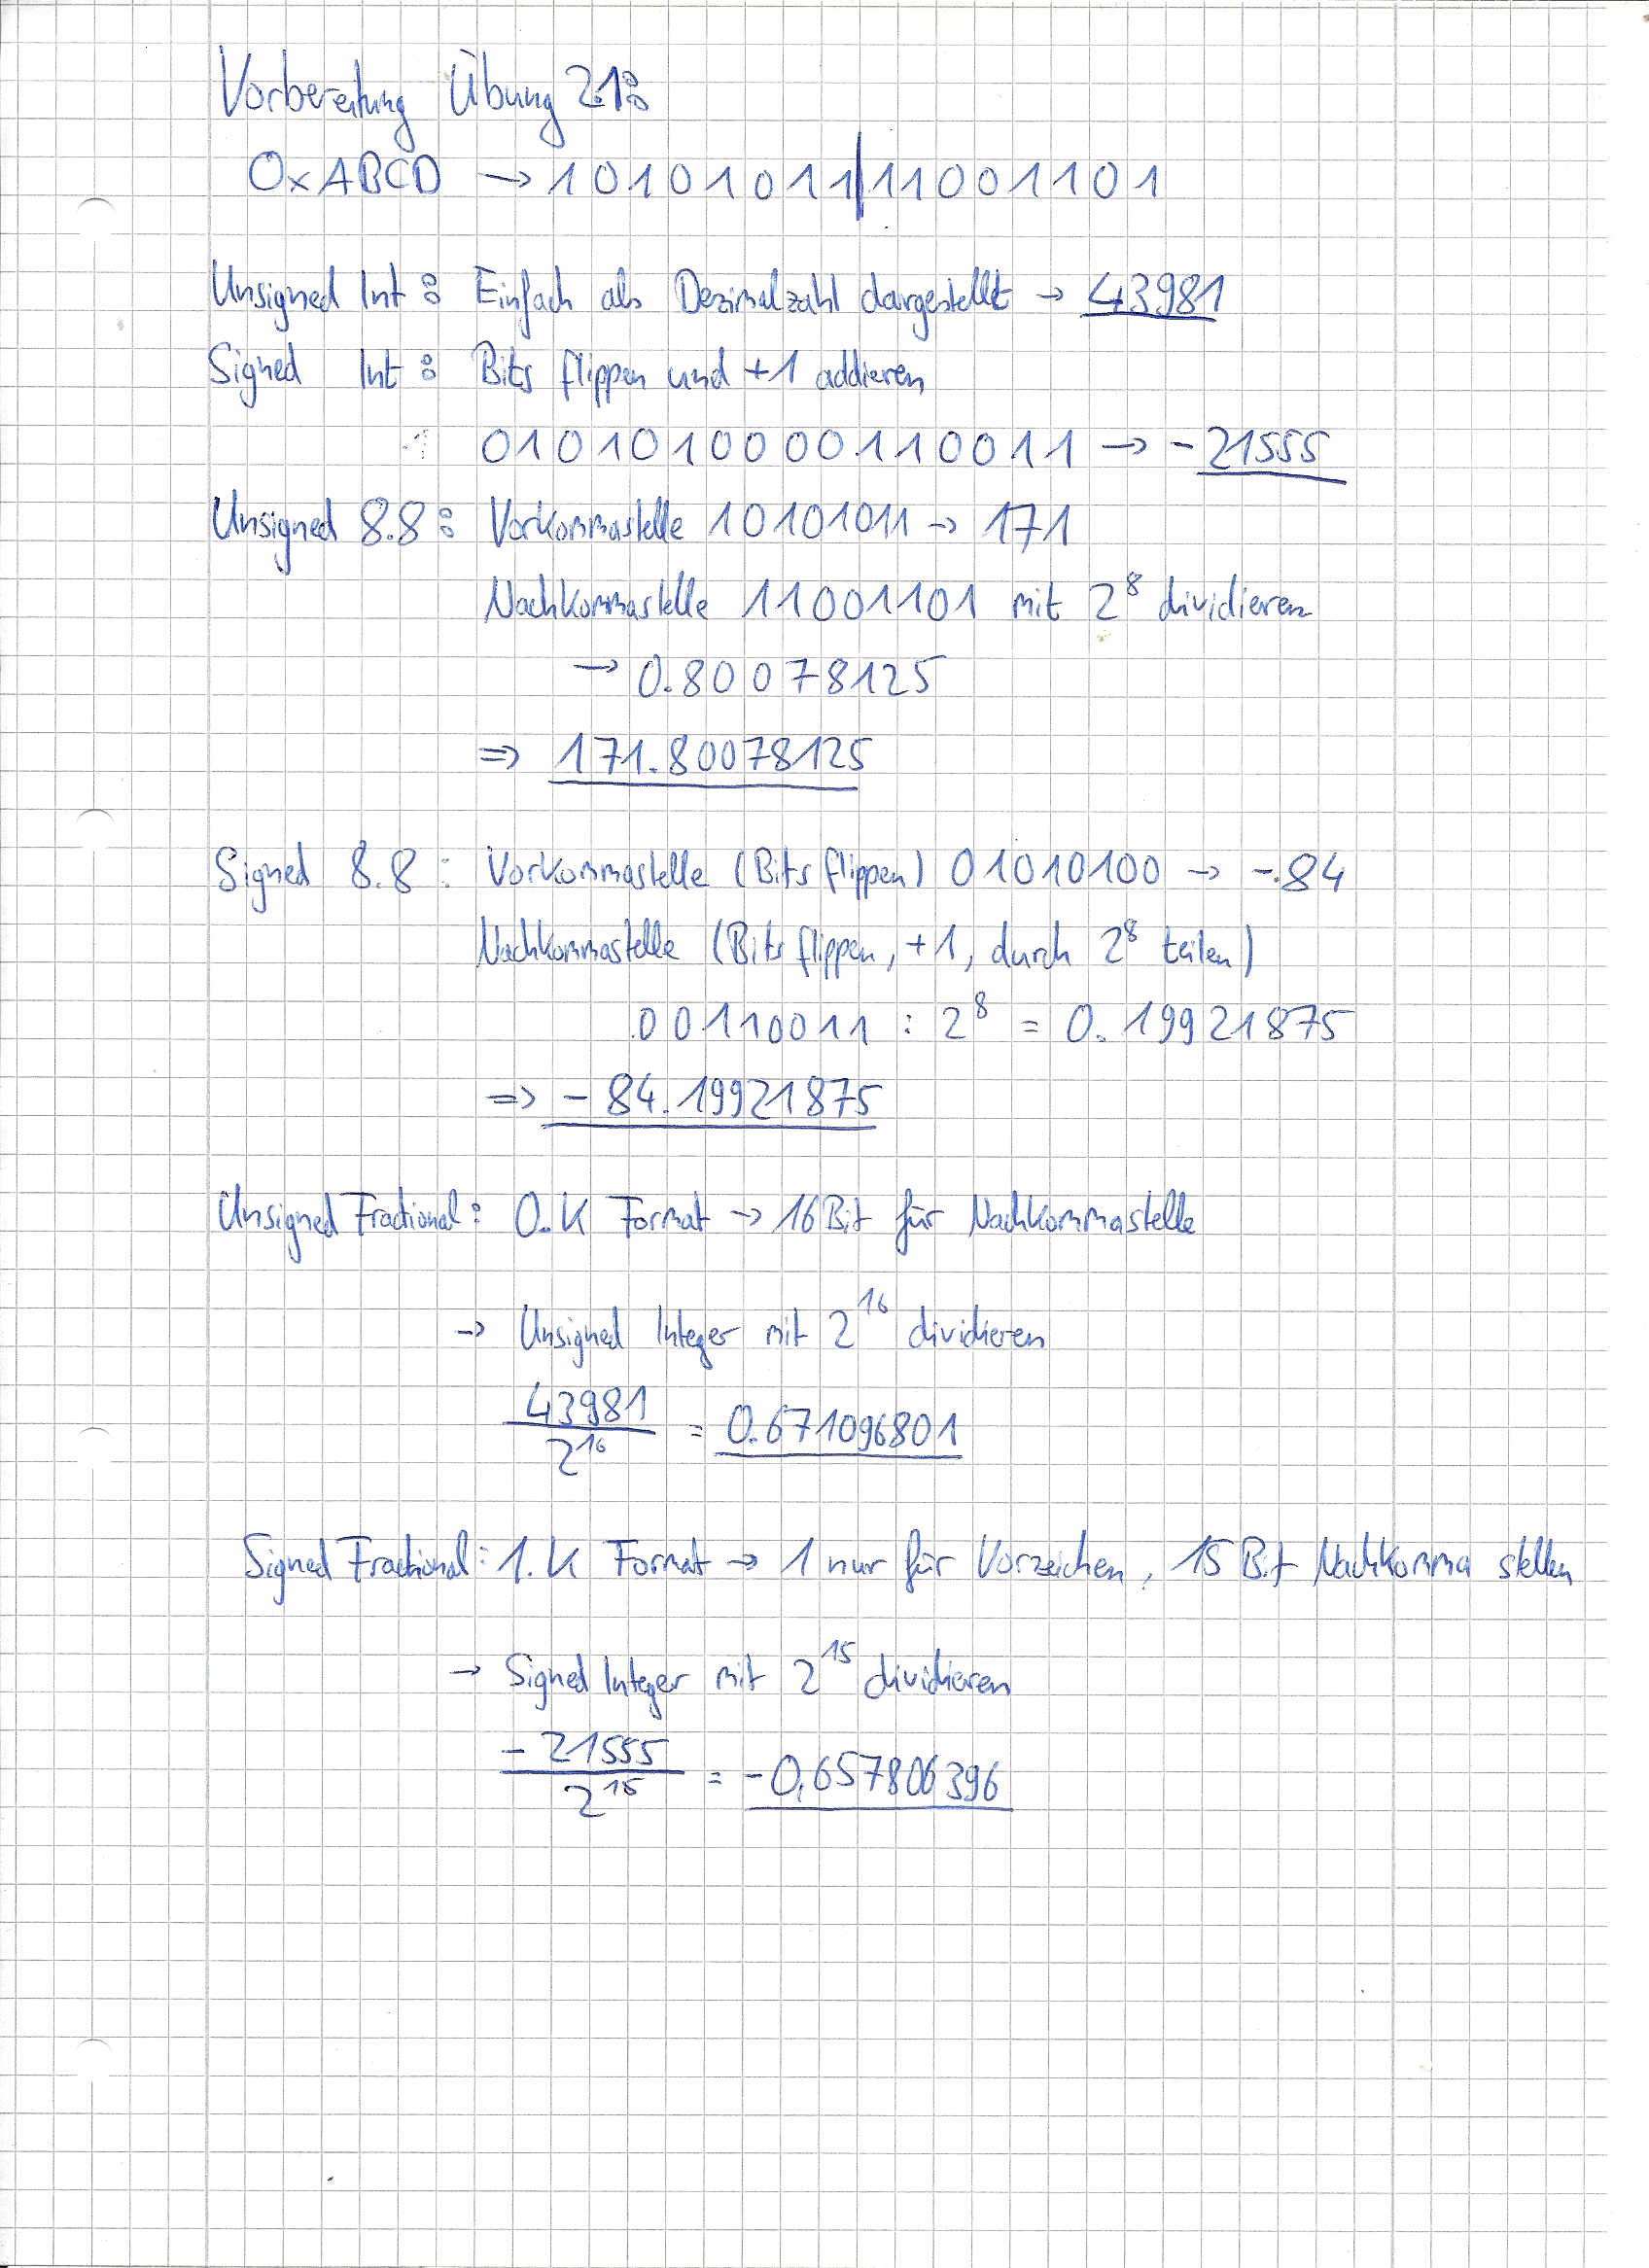 Vorbereitung Übung 2.1:
0xABCD → 10101011|11001101
Unsigned Int : Einfach als Dezimalzahl dargestellt → 43981
Signed Int : Bits flippen und +1 addieren
0101010000110011 → -21555
Unsigned 8.8 : Vorkommastelle 10101011 → 171
Nachkommastelle 11001101 mit 2⁸ dividieren
→ 0.80078125
⇒ 171.80078125
Signed 8.8 : Vorkommastelle (Bits flippen) 01010100 → -84
Nachkommastelle (Bits flippen, +1, durch 2⁸ teilen)
00110011 : 2⁸ = 0.19921875
⇒ - 84.19921875
Unsigned Fractional : 0.K Format → 16 Bit für Nachkommastelle
→ Unsigned Integer mit 2¹⁶ dividieren
43981 / 2¹⁶ = 0.671096801
Signed Fractional : 1.K Format → 1 nur für Vorzeichen, 15 Bit Nachkomma stellen
→ Signed Integer mit 2¹⁵ dividieren
- 21555 / 2¹⁵ = -0,657806396